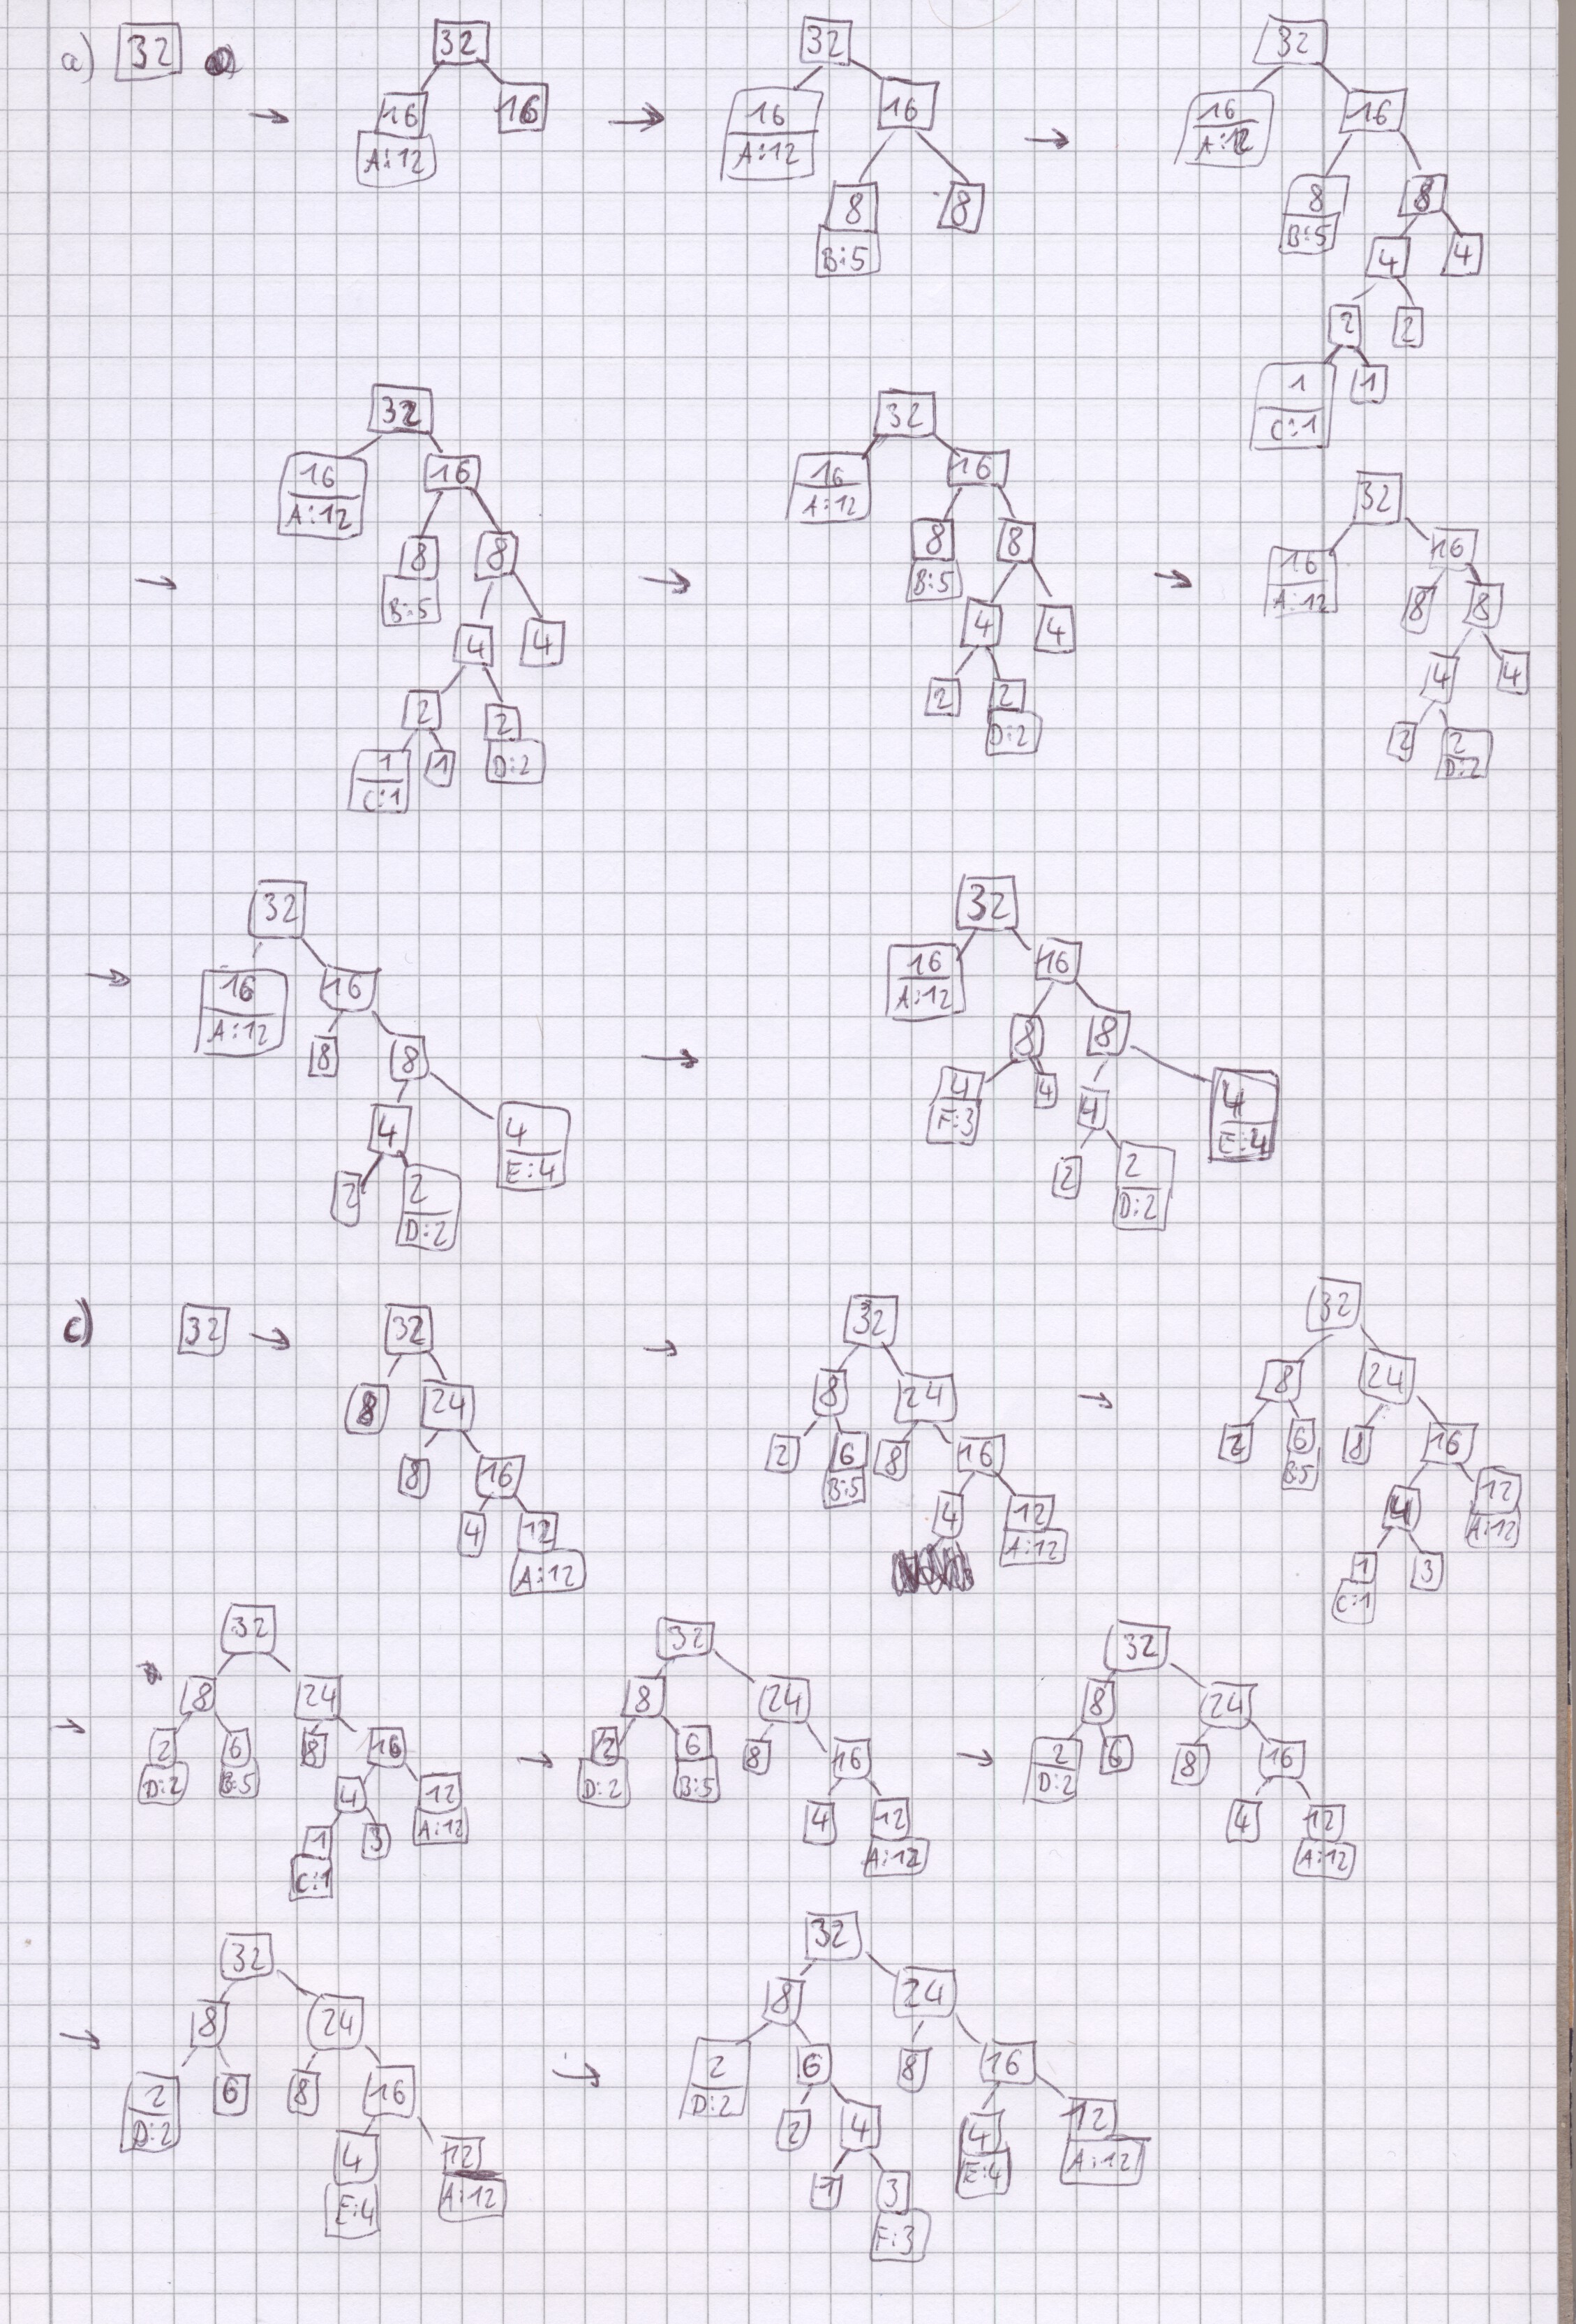 a) 32
32
16 16
A:12
→
32
16 16
A:12
8 8
B:5
→
32
16 16
A:12
8 8
B:5
4 4
2 2
1 1
C:1
→
32
16 16
A:12
8 8
B:5
4 4
2 2
1 1 D:2
C:1
→
32
16 16
A:12
8 8
B:5
4 4
2 2
D:2
→
32
16 16
A:12
8 8
4 4
2 2
D:2
→
32
16 16
A:12
8 8
4 4
E:4
2 2
D:2
→
32
16 16
A:12
8 8
4 4 4 4
F:3 E:4
2 2
D:2
c) 32 →
32
8 24
8 16
4 12
A:12
→
32
8 24
2 6 8 16
B:5
4 12
A:12
→
32
8 24
2 6 8 16
B:5
4 12
A:12
1 3
C:1
→
32
8 24
2 6 8 16
D:2 B:5
4 12
A:12
1 3
C:1
→
32
8 24
2 6 8 16
D:2 B:5
4 12
A:12
→
32
8 24
2 6 8 16
D:2
4 12
A:12
→
32
8 24
2 6 8 16
D:2
4 12
E:4 A:12
→
32
8 24
2 6 8 16
D:2
2 4 4 12
E:4 A:12
1 3
F:3